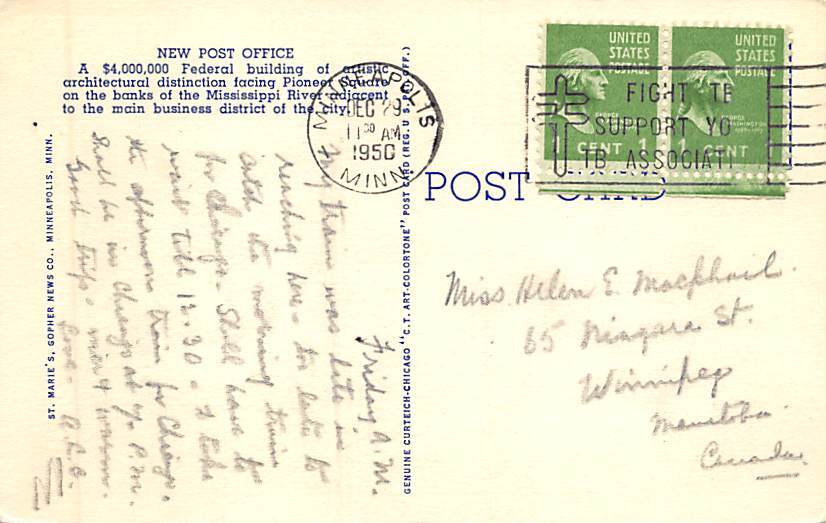 NEW POST OFFICE
A $4,000,000 Federal building of artistic
architectural distinction facing Pioneer Square
on the banks of the Mississippi River adjacent
to the main business district of the city.
ST. MARIE'S, GOPHER NEWS CO., MINNEAPOLIS, MINN.
Friday A.M.
My train was late in
reaching here - too late to
catch the morning train
for Chicago - Shall have to
wait till 12.30 - & take
the afternoon train for Chicago.
Shall be in Chicago at 9 P.M.
Good trip - nice & warm.
Love - A.L.C.
GENUINE CURTEICH-CHICAGO "C.T. ART-COLORTONE" POST CARD (REG. U.S. PAT. OFF.)
MINNEAPOLIS
DEC 29
11 30 AM
1950
MINN.
UNITED
STATES
POSTAGE
GEORGE
WASHINGTON
1 CENT 1
UNITED
STATES
POSTAGE
GEORGE
WASHINGTON
1789-1797
1 CENT 1
FIGHT TB
SUPPORT YO
TB ASSOCIATI
POST CARD
Miss Helen E. Macphail.
65 Niagara St.
Winnipeg
Manitoba.
Canada.